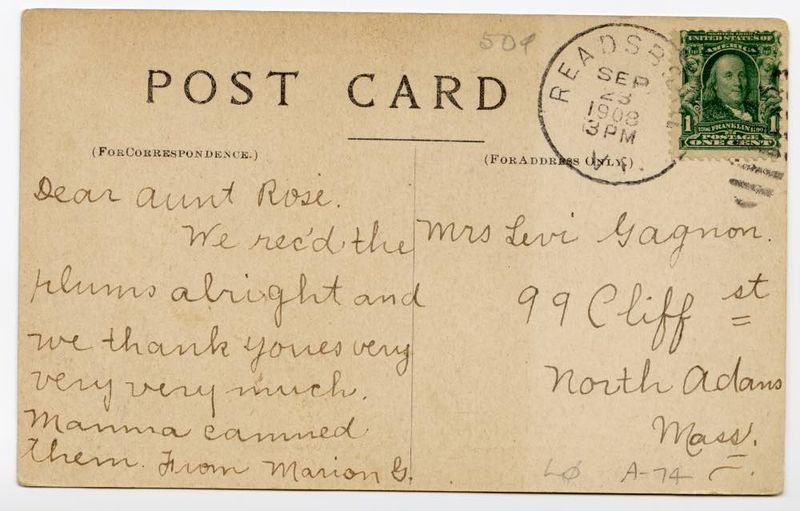 509
POST CARD
(FOR CORRESPONDENCE.)
(FOR ADDRESS ONLY.)
READSB
SEP
23
1908
3 PM
VT.
UNITED STATES OF
AMERICA
1 FRANKLIN 1
POSTAGE
ONE CENT
Dear aunt Rose.
We rec'd the
plums alright and
we thank youes very
very very much.
Mamma canned
them. From Marion G.
Mrs Levi Gagnon.
99 Cliff st
North Adams
Mass.
LØ A-74